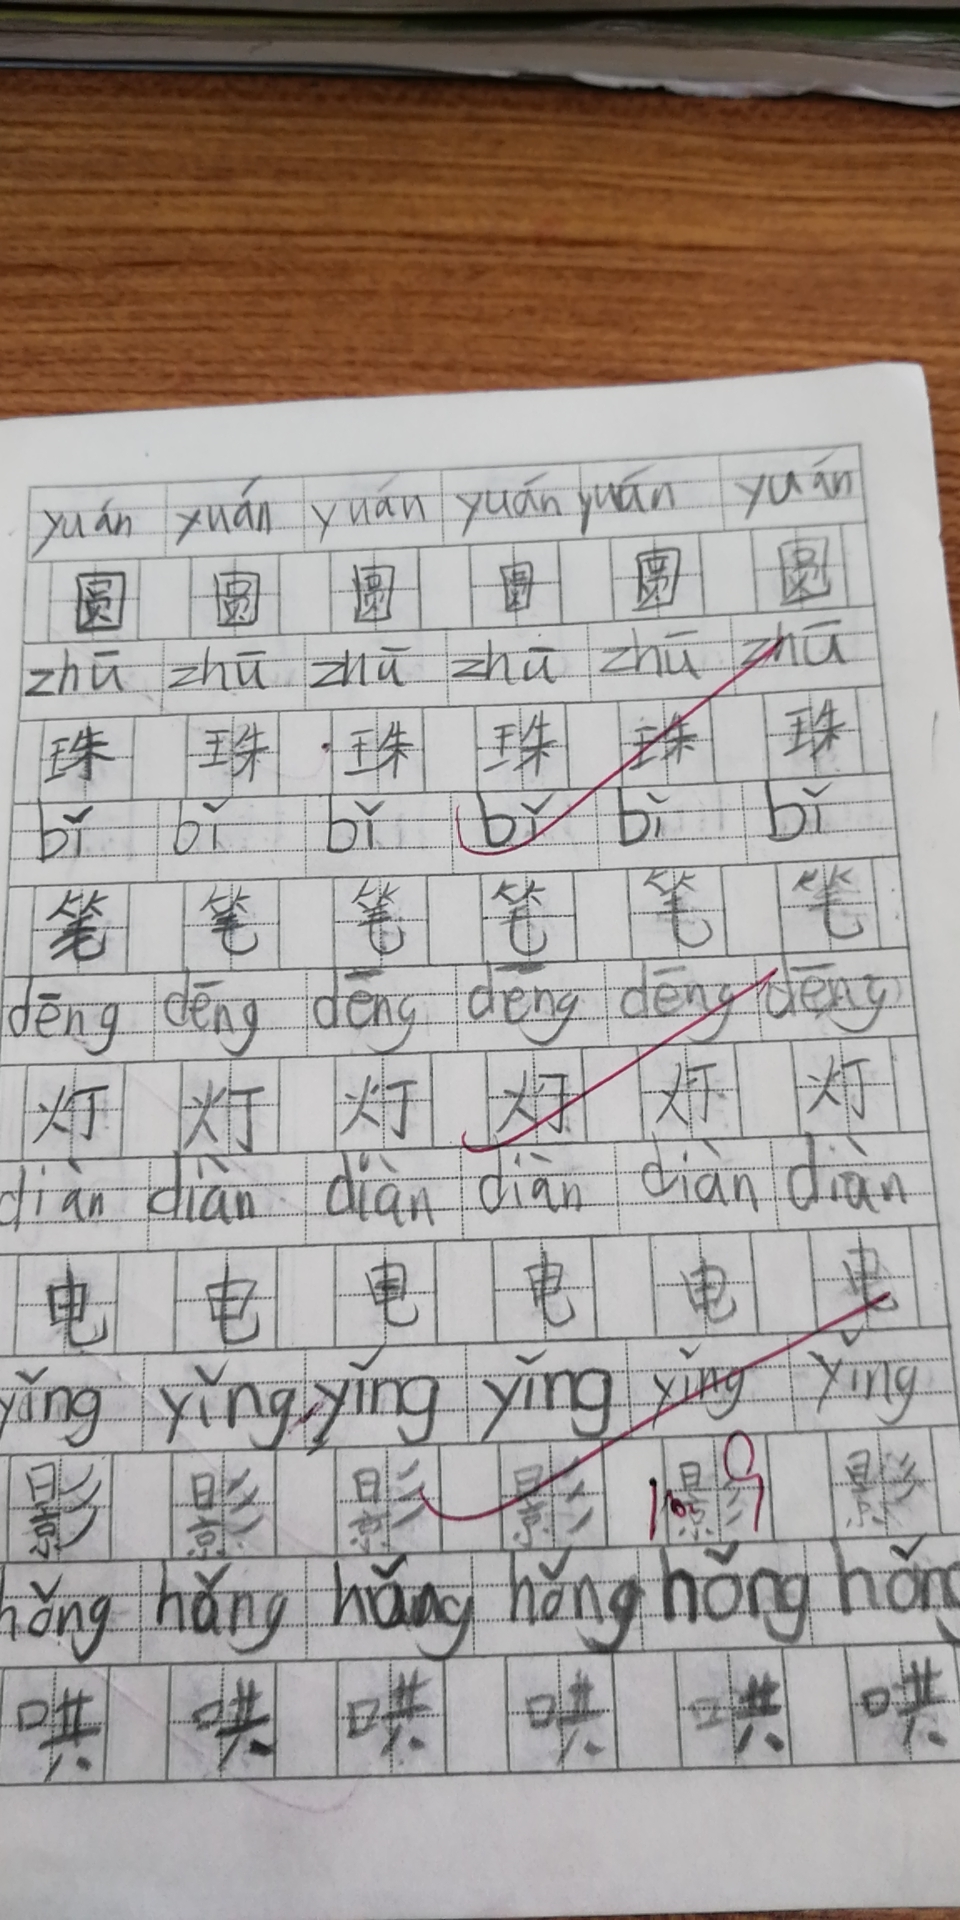 yuán yuán yuán yuán yuán yuán
圆 圆 圆 圆 圆 圆
zhū zhū zhū zhū zhū zhū
珠 珠 珠 珠 珠 珠
bǐ bǐ bǐ bǐ bǐ bǐ
笔 笔 笔 笔 笔 笔
dēng dēng dēng dēng dēng dēng
灯 灯 灯 灯 灯 灯
diàn diàn diàn diàn diàn diàn
电 电 电 电 电 电
yǐng yǐng yǐng yǐng yǐng yǐng
影 影 影 影 影 影
hǒng hǒng hǒng hǒng hǒng hǒng
哄 哄 哄 哄 哄 哄